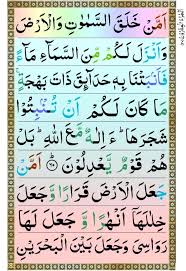 اَمَّنْ خَلَقَ السَّمٰوٰتِ وَالْاَرْضَ
وَاَنْزَلَ لَكُمْ مِّنَ السَّمَآءِ مَآءً ۚ
فَاَنْۢبَتْنَا بِهٖ حَدَآئِقَ ذَاتَ بَهْجَةٍ ۚ
مَا كَانَ لَكُمْ اَنْ تُنْۢبِتُوْا
شَجَرَهَا ؕ ءَاِلٰهٌ مَّعَ اللّٰهِ ؕ بَلْ
هُمْ قَوْمٌ يَّعْدِلُوْنَ ؕ﴿۶۰﴾ اَمَّنْ
جَعَلَ الْاَرْضَ قَرَارًا وَّجَعَلَ
خِلٰلَهَاۤ اَنْهٰرًا وَّجَعَلَ لَهَا
رَوَاسِيَ وَجَعَلَ بَيْنَ الْبَحْرَيْنِ